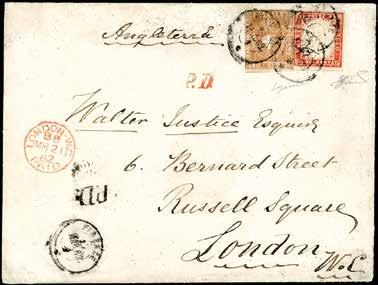 Angleterre
P.D.
Walter Justice Esquire
6. Bernard Street
Russell Square
London
W.C
LONDON. W.C
MR 21
62
PAID
P.D.
FIRENZE